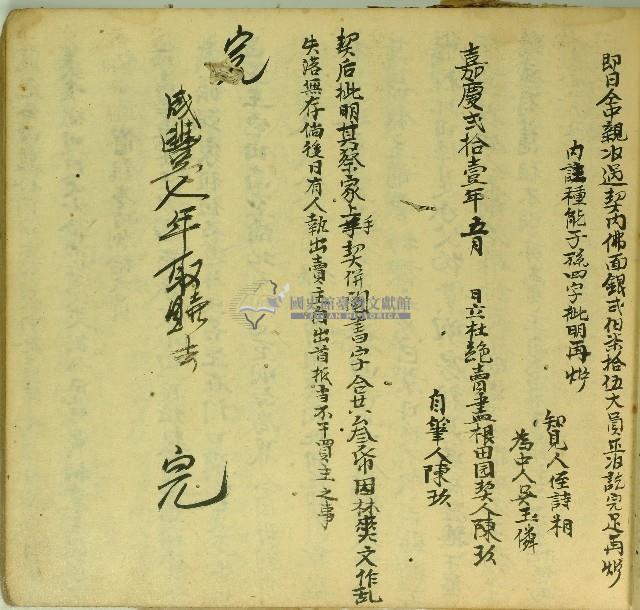 即日仝中親收過契內佛面銀弍佰柒拾伍大員正收訖完足再炤
內註種能子孫四字批明再炤
知見人侄詩相
為中人吳玉憐
嘉慶弍拾壹年五月 日立杜絕賣盡根田园契人陳玖
自筆人陳玖
契后批明其蔡家上手契併鬮書字合共叁帋因林爽文作乱
失落無存倘後日有人執出賣主自出首抵当不干買主之事
完
咸豐 年取贖去 完
國史館臺灣文獻館
TAIWAN HISTORICA